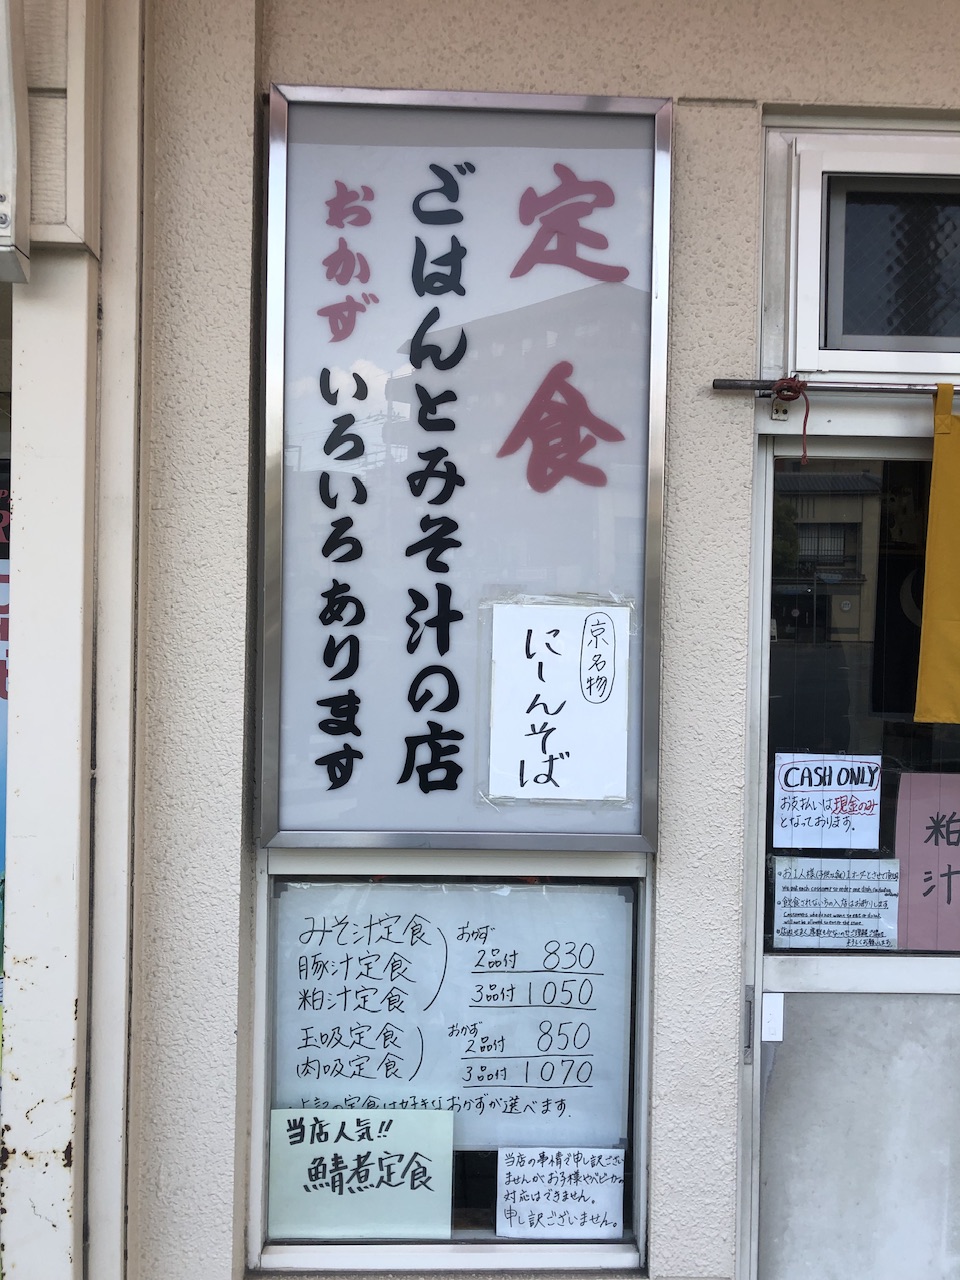 定食
ごはんとみそ汁の店
おかず いろいろあります
京名物
にーんそば
みそ汁定食
豚汁定食
粕汁定食
おかず
2品付 830
3品付 1050
玉吸定食
肉吸定食
おかず
2品付 850
3品付 1070
上記の定食は好きなおかずが選べます。
当店人気!!
鯖煮定食
当店の事情で申し訳ござい
ませんがお子様やベビーカーの
対応はできません。
申し訳ございません。
CASH ONLY
お支払いは現金のみ
となっております。
粕
汁
We ask each customer to order one dish
飲食されない方の入店はお断りします
Customers who do not want to eat or drink
will not be allowed to enter the store